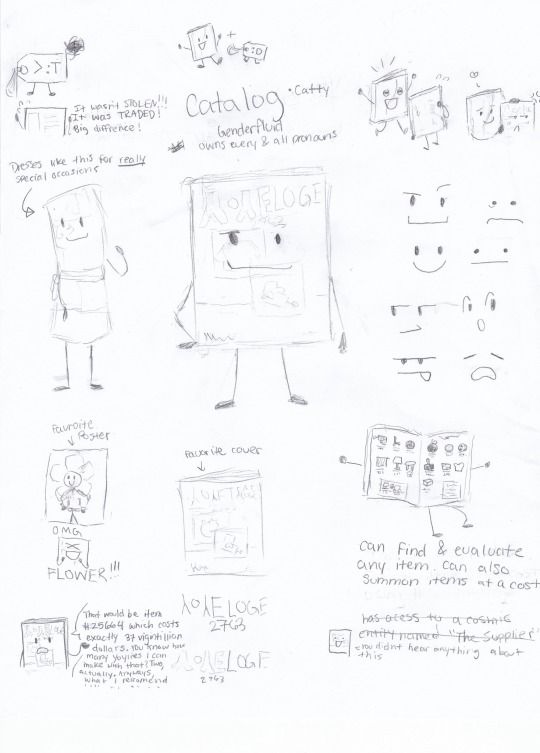 >:T
It wasn't STOLEN!!!
It was TRADED!
Big diffrence!
+
:D
Catalog
• Catty
Genderfluid
owns every & all pronouns
Dresses like this for really
special occasions
YOYLELOGE
2763
Favroite
Poster
OMG
FLOWER!!!
Favorite cover
can find & evaluate
any item. can also
summon items at a cost
has acess to a cosmic
entity named "The Supplier"
you didnt hear anything about
this
YOYLELOGE
2763
YOYLELOGE
2763
That would be item
#25664 which costs
exactly 37 vigintillion
dollars. You know how
many Yoyles I can
make with that? Two,
actually. Anyways,
what I recomend